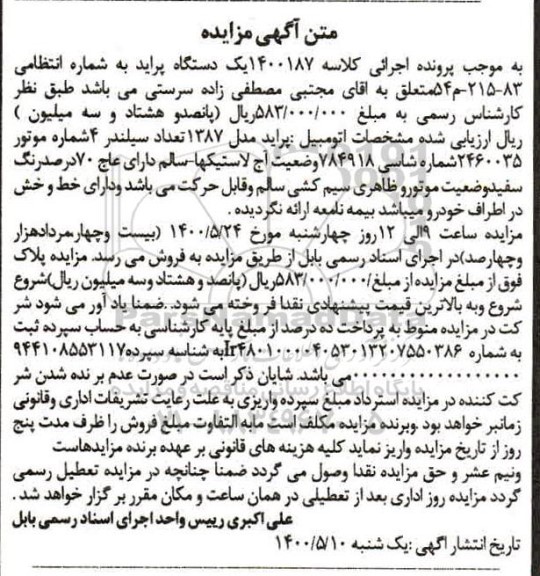 متن آگهی مزایده
به موجب پرونده اجرائی کلاسه ۱۴۰۰۱۸۷یک دستگاه پراید به شماره انتظامی
۸۳-۲۱۵م۵۴متعلق به اقای مجتبی مصطفی زاده سرستی می باشد طبق نظر
کارشناس رسمی به مبلغ ۵۸۳/۰۰۰/۰۰۰ریال (پانصدو هشتاد و سه میلیون )
ریال ارزیابی شده مشخصات اتومبیل :پراید مدل ۱۳۸۷تعداد سیلندر ۴شماره موتور
۲۴۶۰۰۳۵شماره شاسی ۷۸۴۹۱۸وضعیت آج لاستیکها-سالم دارای عاج ۷۰درصدرنگ
سفیدوضعیت موتورو ظاهری سیم کشی سالم وقابل حرکت می باشد ودارای خط و خش
در اطراف خودرو میباشد بیمه نامعه ارائه نگردیده .
مزایده ساعت ۹الی ۱۲روز چهارشنبه مورخ ۱۴۰۰/۵/۲۴ (بیست وچهار،مردادهزار
وچهارصد)در اجرای اسناد رسمی بابل از طریق مزایده به فروش می رسد. مزایده پلاک
فوق از مبلغ مزایده از مبلغ/۵۸۳/۰۰۰/۰۰۰ریال (پانصد و هشتاد وسه میلیون ریال)شروع
شروع وبه بالاترین قیمت پیشنهادی نقدا فر وخته می شود .ضمنا یاد آور می شود شر
کت در مزایده منوط به پرداخت ده درصد از مبلغ پایه کارشناسی به حساب سپرده ثبت
به شماره به شناسه سپرده
می باشد. شایان ذکر است در صورت عدم بر نده شدن شر
کت کننده در مزایده استرداد مبلغ سپرده واریزی به علت رعایت تشریفات اداری وقانونی
زمانبر خواهد بود .وبرنده مزایده مکلف است مابه التفاوت مبلغ فروش را ظرف مدت پنج
روز از تاریخ مزایده واریز نماید کلیه هزینه های قانونی بر عهده برنده مزایدهاست
ونیم عشر و حق مزایده نقدا وصول می گردد ضمنا چنانچه در مزایده تعطیل رسمی
گردد مزایده روز اداری بعد از تعطیلی در همان ساعت و مکان مقرر بر گزار خواهد شد .
علی اکبری رییس واحد اجرای اسناد رسمی بابل
تاریخ انتشار اگهی :یک شنبه ۱۴۰۰/۵/۱۰